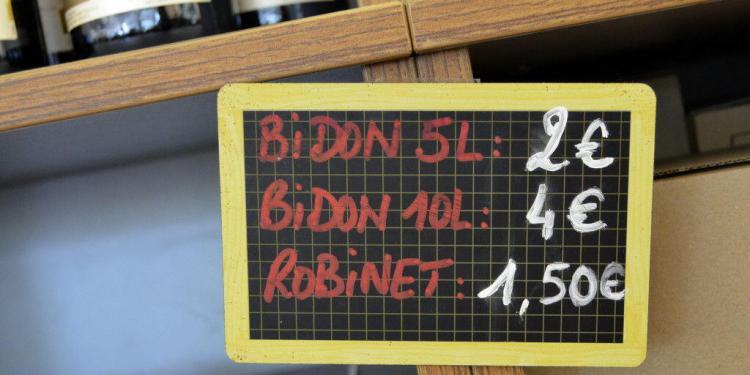 BiDON 5L: 2€
BiDON 10L: 4€
ROBiNET: 1,50€